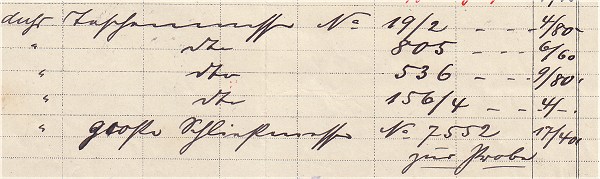 duß Taschenmesser No 19/2 - - 4/80
" dto 805 - - 6/60
" dto 536 - - 9/80
" dto 156/4 - - 4/-
" große Schließmesser No 7552 17/40
zur Probe